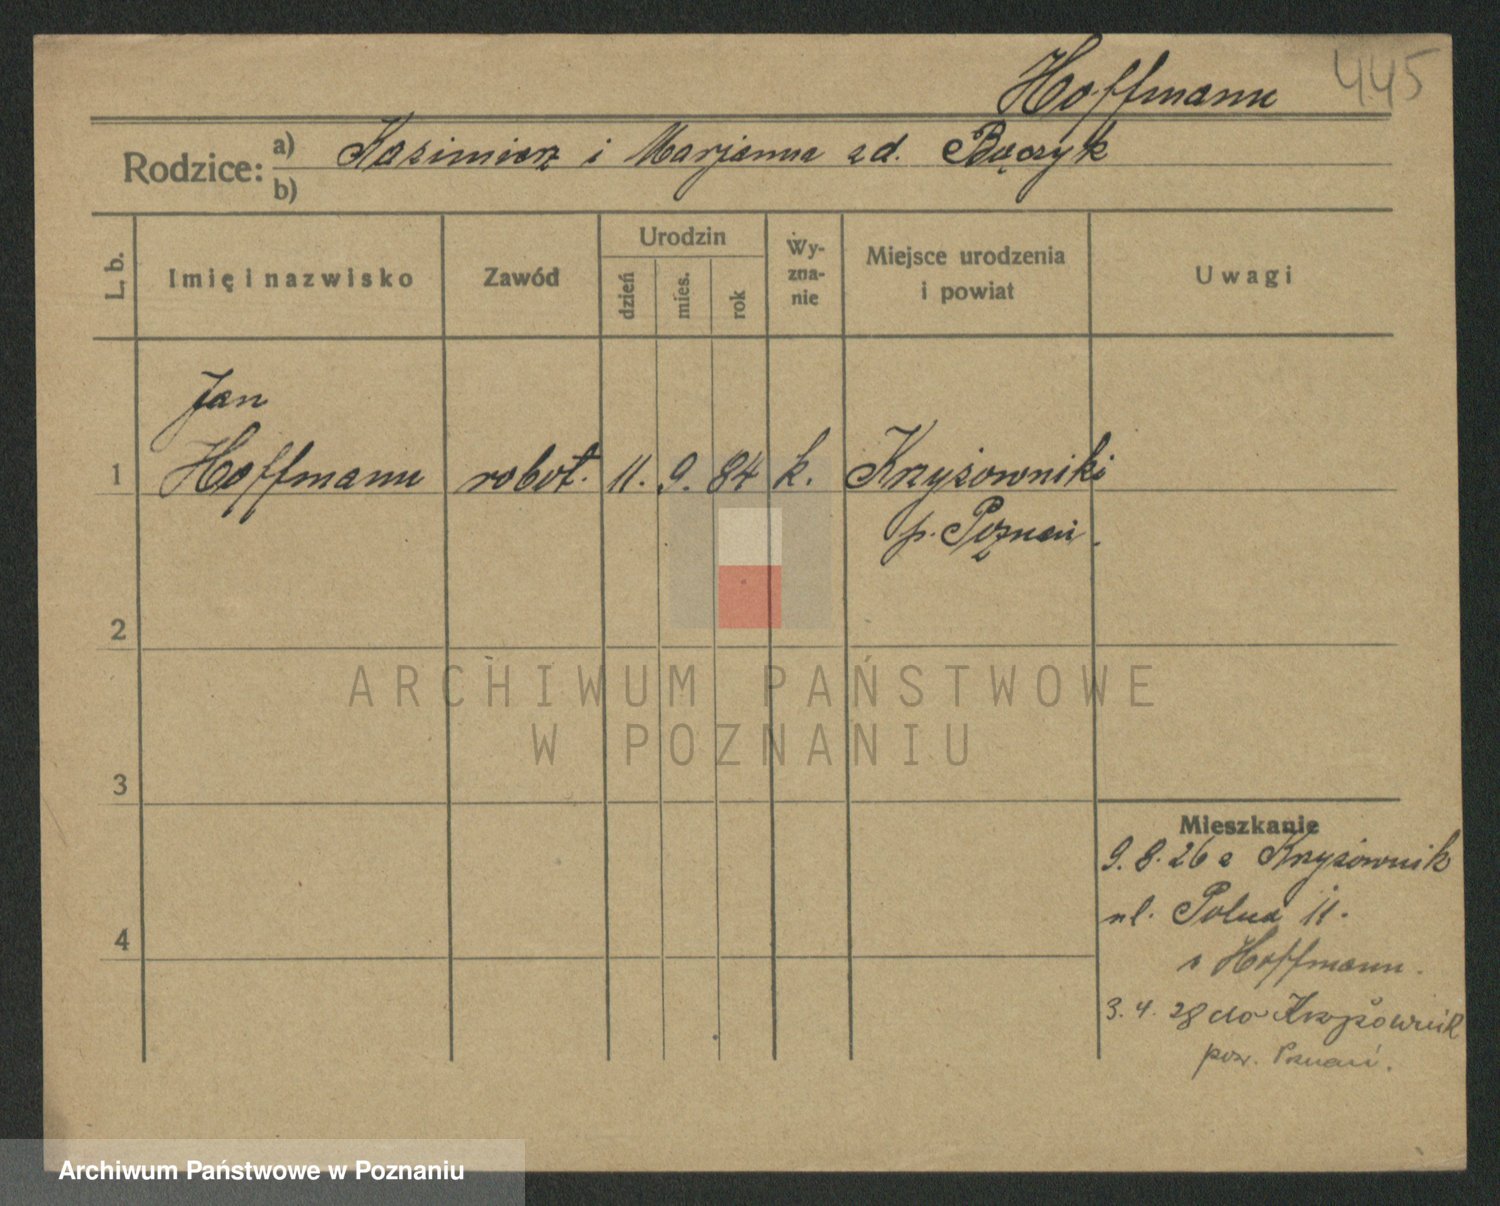 Hoffmann 445
Rodzice: a) Kazimierz i Marjanna zd. Bączyk
b)
L. b. Imię i nazwisko Zawód Urodzin dzień mies. rok Wyznanie Miejsce urodzenia i powiat Uwagi
Jan
1 Hoffmann robot. 11. 9. 84 k. Krzyżowniki
p. Poznań.
2
ARCHIWUM PAŃSTWOWE
W POZNANIU
3
Mieszkanie
9.8.26 z Krzyżownik
ul. Polna 11.
4
Hoffmann.
3. 4. 28 do Krzyżownik
pow. Poznań.
Archiwum Państwowe w Poznaniu